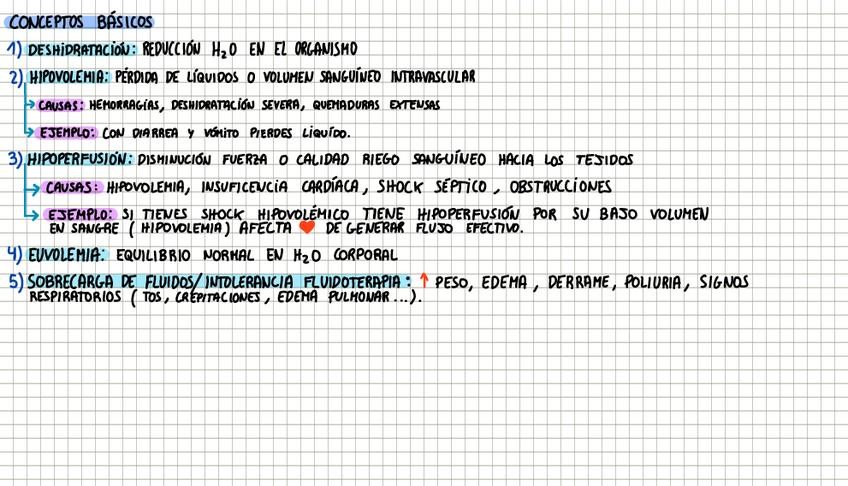 CONCEPTOS BÁSICOS
1) DESHIDRATACIÓN: REDUCCIÓN H₂O EN EL ORGANISMO
2) HIPOVOLEMIA: PÉRDIDA DE LÍQUIDOS O VOLUMEN SANGUÍNEO INTRAVASCULAR
CAUSAS: HEMORRAGIAS, DESHIDRATACIÓN SEVERA, QUEMADURAS EXTENSAS
EJEMPLO: CON DIARREA Y VÓMITO PIERDES LÍQUIDO.
3) HIPOPERFUSIÓN: DISMINUCIÓN FUERZA O CALIDAD RIEGO SANGUÍNEO HACIA LOS TEJIDOS
CAUSAS: HIPOVOLEMIA, INSUFICENCIA CARDÍACA, SHOCK SÉPTICO, OBSTRUCCIONES
EJEMPLO: SI TIENES SHOCK HIPOVOLÉMICO TIENE HIPOPERFUSIÓN POR SU BAJO VOLUMEN
EN SANGRE (HIPOVOLEMIA) AFECTA ❤ DE GENERAR FLUJO EFECTIVO.
4) EUVOLEMIA: EQUILIBRIO NORMAL EN H₂O CORPORAL
5) SOBRECARGA DE FLUIDOS/INTOLERANCIA FLUIDOTERAPIA: ↑ PESO, EDEMA, DERRAME, POLIURIA, SIGNOS
RESPIRATORIOS (TOS, CREPITACIONES, EDEMA PULMONAR...).